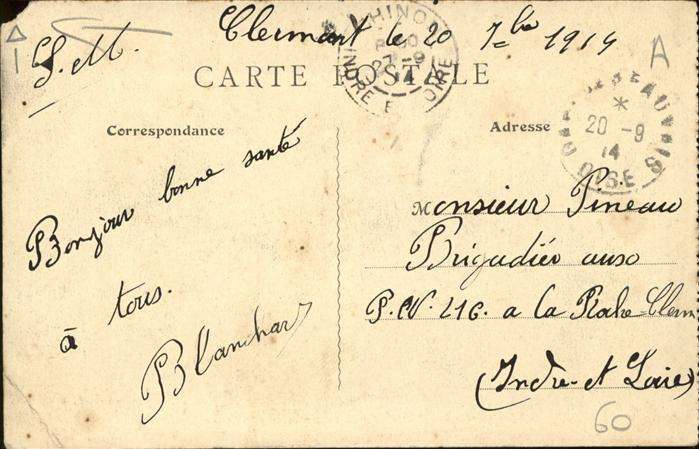 F. M.
Clermont le 20 7bre 1914
CARTE POSTALE
CHINON
27-9
14
INDRE ET LOIRE
Correspondance
Adresse
BEAUVAIS
20-9
14
OISE
A
Bonjour bonne santé
à tous.
Blanchard
Monsieur Pineau
Brigadier
P. a la
(Indre-et Loire)
60